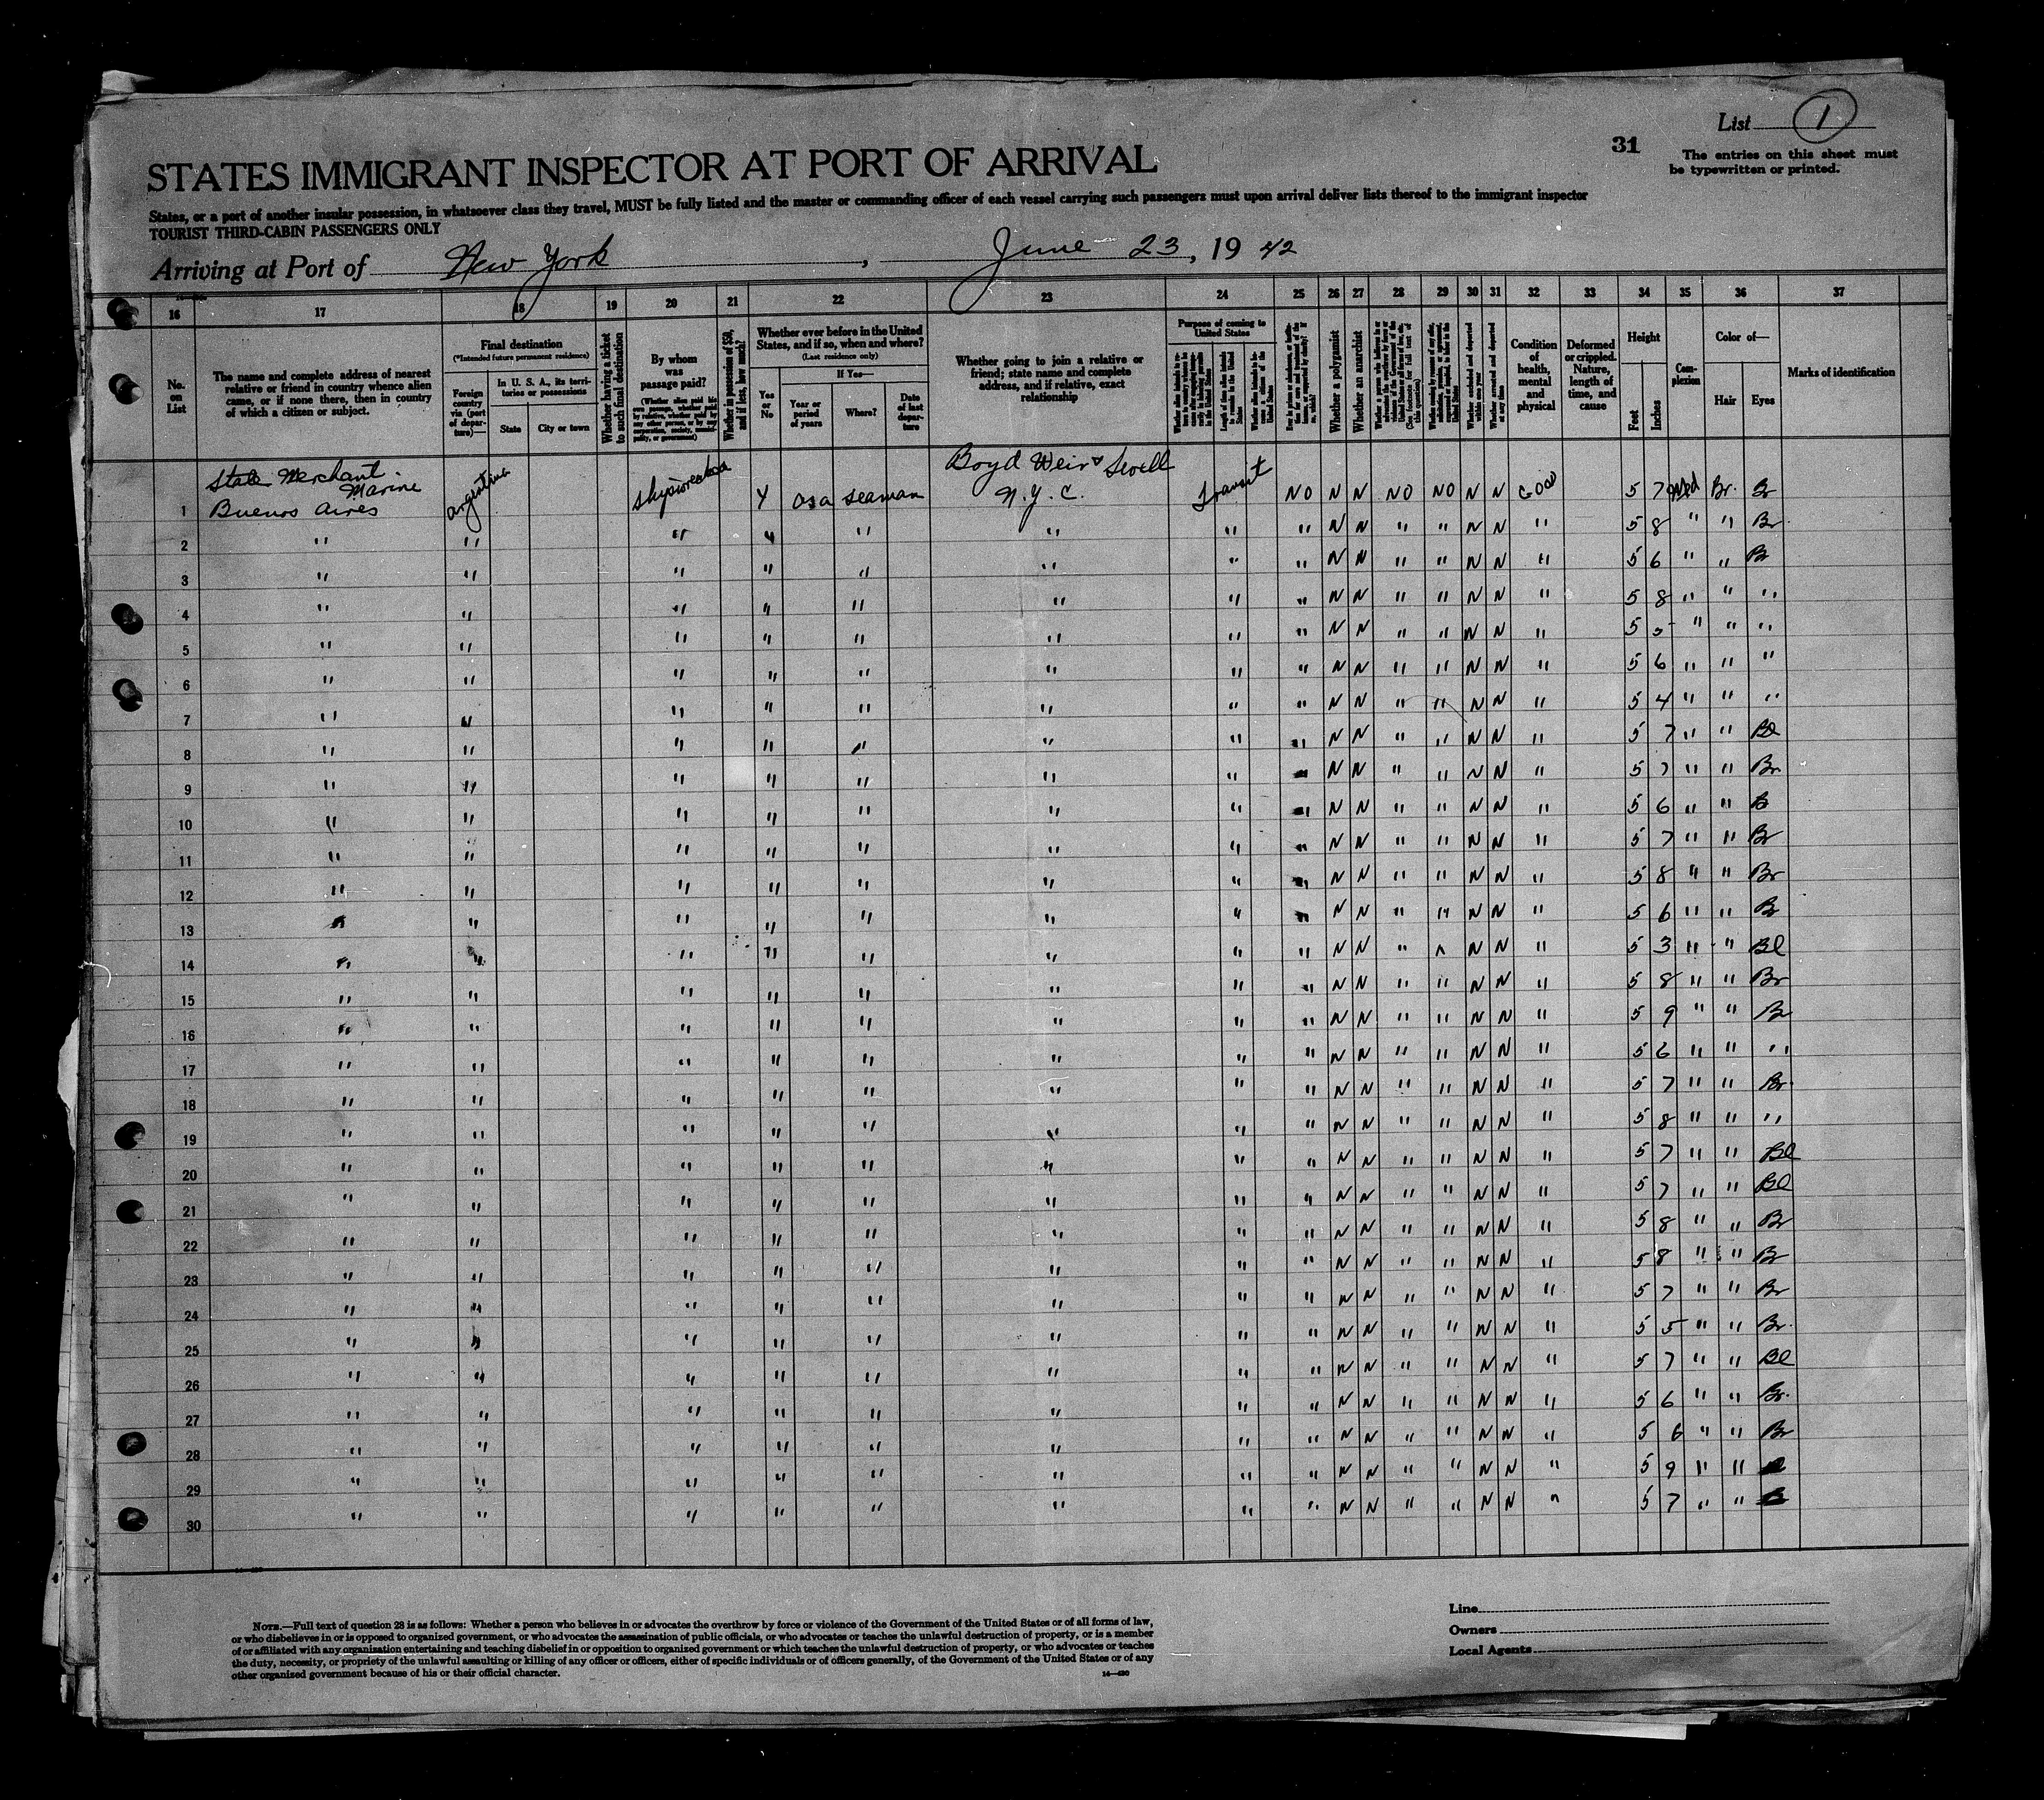 List 1
31
The entries on this sheet must
be typewritten or printed.
STATES IMMIGRANT INSPECTOR AT PORT OF ARRIVAL
States, or a port of another insular possession, in whatsoever class they travel, MUST be fully listed and the master or commanding officer of each vessel carrying such passengers must upon arrival deliver lists thereof to the immigrant inspector
TOURIST THIRD-CABIN PASSENGERS ONLY
Arriving at Port of New York, June 23, 1942
16 17 18 19 20 21 22 23 24 25 26 27 28 29 30 31 32 33 34 35 36 37
No. on List
The name and complete address of nearest
relative or friend in country whence alien
came, or if none there, then in country
of which a citizen or subject.
Final destination
(*Intended future permanent residence)
Foreign country via (port of departure)—
In U. S. A., its territories or possessions
State
City or town
Whether having a ticket to such final destination
By whom was passage paid?
Whether in possession of $50, and if less, how much?
Whether ever before in the United
States, and if so, when and where?
(Last residence only)
If Yes—
Yes or No
Year or period of years
Where?
Date of last departure
Whether going to join a relative or
friend; state name and complete
address, and if relative, exact
relationship
Purpose of coming to United States
Whether a polygamist
Whether an anarchist
Condition of health, mental and physical
Deformed or crippled. Nature, length of time, and cause
Height
Feet
Inches
Complexion
Color of—
Hair
Eyes
Marks of identification
State Merchant Marine
Buenos Aires
1 Argentina shipwrecked Y as a seaman Boyd Weir & Sewell N.Y.C. Transit NO N N NO NO N N Good 5 7 Med Br. Br
2 " " " " " " " " N N " " N N " 5 8 " " Br
3 " " " " " " " " N N " " N N " 5 6 " " Br
4 " " " " " " " " N N " " N N " 5 8 " " "
5 " " " " " " " " N N " " N N " 5 5 " " "
6 " " " " " " " " N N " " N N " 5 6 " " "
7 " " " " " " " " N N " " N N " 5 4 " " "
8 " " " " " " " " N N " " N N " 5 7 " " Bl
9 " " " " " " " " N N " " N N " 5 7 " " Br
10 " " " " " " " " N N " " N N " 5 6 " " Br
11 " " " " " " " " N N " " N N " 5 7 " " Br
12 " " " " " " " " N N " " N N " 5 8 " " Br
13 " " " " " " " " N N " " N N " 5 6 " " Br
14 " " " " " " " " N N " " N N " 5 3 " " Bl
15 " " " " " " " " N N " " N N " 5 8 " " Br
16 " " " " " " " " N N " " N N " 5 9 " " Br
17 " " " " " " " " N N " " N N " 5 6 " " "
18 " " " " " " " " N N " " N N " 5 7 " " Br.
19 " " " " " " " " N N " " N N " 5 8 " " "
20 " " " " " " " " N N " " N N " 5 7 " " Bl
21 " " " " " " " " N N " " N N " 5 7 " " Bl
22 " " " " " " " " N N " " N N " 5 8 " " Br
23 " " " " " " " " N N " " N N " 5 8 " " Br
24 " " " " " " " " N N " " N N " 5 7 " " Br
25 " " " " " " " " N N " " N N " 5 5 " " Br.
26 " " " " " " " " N N " " N N " 5 7 " " Bl
27 " " " " " " " " N N " " N N " 5 6 " " Br.
28 " " " " " " " " N N " " N N " 5 6 " " Br
29 " " " " " " " " N N " " N N " 5 9 " "
30 " " " " " " " " N N " " N N " 5 7 " "
NOTE.—Full text of question 28 is as follows: Whether a person who believes in or advocates the overthrow by force or violence of the Government of the United States or of all forms of law,
or who disbelieves in or is opposed to organized government, or who advocates the assassination of public officials, or who advocates or teaches the unlawful destruction of property, or is a member
of or affiliated with any organization entertaining and teaching disbelief in or opposition to organized government or which teaches the unlawful destruction of property, or who advocates or teaches
the duty, necessity, or propriety of the unlawful assaulting or killing of any officer or officers, either of specific individuals or of officers generally, of the Government of the United States or of any
other organized government because of his or their official character.
Line
Owners
Local Agents